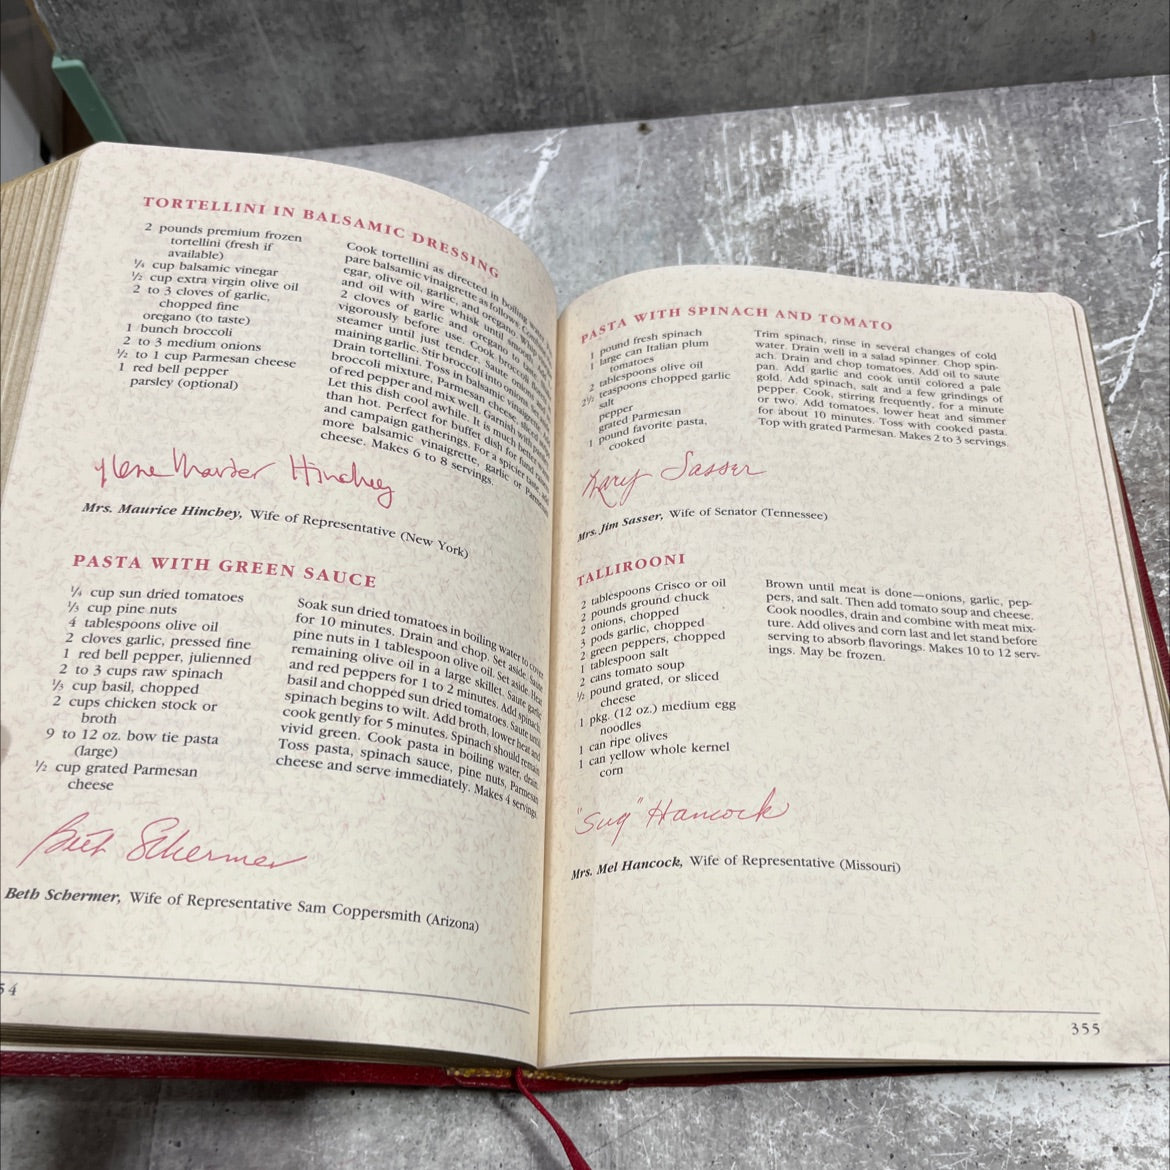 TORTELLINI IN BALSAMIC DRESSING
2 pounds premium frozen
tortellini (fresh if
available)
¼ cup balsamic vinegar
½ cup extra virgin olive oil
2 to 3 cloves of garlic,
chopped fine
oregano (to taste)
1 bunch broccoli
2 to 3 medium onions
½ to 1 cup Parmesan cheese
1 red bell pepper
parsley (optional)
Cook tortellini as directed in boiling
pare balsamic vinaigrette as follows:
egar, olive oil, garlic, and oregano.
and oil with wire whisk until
2 cloves of garlic and oregano to
vigorously before use. Cook broccoli
steamer until just tender. Saute onions
maining garlic. Stir broccoli into onions
Drain tortellini. Toss in balsamic vinaigrette.
broccoli mixture, Parmesan cheese,
of red pepper and mix well. Garnish with
Let this dish cool awhile. It is much better
than hot. Perfect for buffet dish for fund
and campaign gatherings. For a spicier taste, add
more balsamic vinaigrette, garlic or Parmesan
cheese. Makes 6 to 8 servings.
Ilene Marder Hinchey
Mrs. Maurice Hinchey, Wife of Representative (New York)
PASTA WITH GREEN SAUCE
¼ cup sun dried tomatoes
⅓ cup pine nuts
4 tablespoons olive oil
2 cloves garlic, pressed fine
1 red bell pepper, julienned
2 to 3 cups raw spinach
⅓ cup basil, chopped
2 cups chicken stock or
broth
9 to 12 oz. bow tie pasta
(large)
½ cup grated Parmesan
cheese
Soak sun dried tomatoes in boiling water to cover
for 10 minutes. Drain and chop. Set aside. Saute
pine nuts in 1 tablespoon olive oil. Set aside. Heat
remaining olive oil in a large skillet. Saute garlic
and red peppers for 1 to 2 minutes. Add spinach,
basil and chopped sun dried tomatoes. Saute until
spinach begins to wilt. Add broth, lower heat and
cook gently for 5 minutes. Spinach should remain
vivid green. Cook pasta in boiling water, drain.
Toss pasta, spinach sauce, pine nuts, Parmesan
cheese and serve immediately. Makes 4 servings.
Beth Schermer
Beth Schermer, Wife of Representative Sam Coppersmith (Arizona)
54
PASTA WITH SPINACH AND TOMATO
1 pound fresh spinach
1 large can Italian plum
tomatoes
2 tablespoons olive oil
2½ teaspoons chopped garlic
salt
pepper
grated Parmesan
1 pound favorite pasta,
cooked
Trim spinach, rinse in several changes of cold
water. Drain well in a salad spinner. Chop spin-
ach. Drain and chop tomatoes. Add oil to saute
pan. Add garlic and cook until colored a pale
gold. Add spinach, salt and a few grindings of
pepper. Cook, stirring frequently, for a minute
or two. Add tomatoes, lower heat and simmer
for about 10 minutes. Toss with cooked pasta.
Top with grated Parmesan. Makes 2 to 3 servings.
Mary Sasser
Mrs. Jim Sasser, Wife of Senator (Tennessee)
TALLIROONI
2 tablespoons Crisco or oil
2 pounds ground chuck
2 onions, chopped
3 pods garlic, chopped
2 green peppers, chopped
1 tablespoon salt
2 cans tomato soup
½ pound grated, or sliced
cheese
1 pkg. (12 oz.) medium egg
noodles
1 can ripe olives
1 can yellow whole kernel
corn
Brown until meat is done—onions, garlic, pep-
pers, and salt. Then add tomato soup and cheese.
Cook noodles, drain and combine with meat mix-
ture. Add olives and corn last and let stand before
serving to absorb flavorings. Makes 10 to 12 serv-
ings. May be frozen.
"Sug" Hancock
Mrs. Mel Hancock, Wife of Representative (Missouri)
355